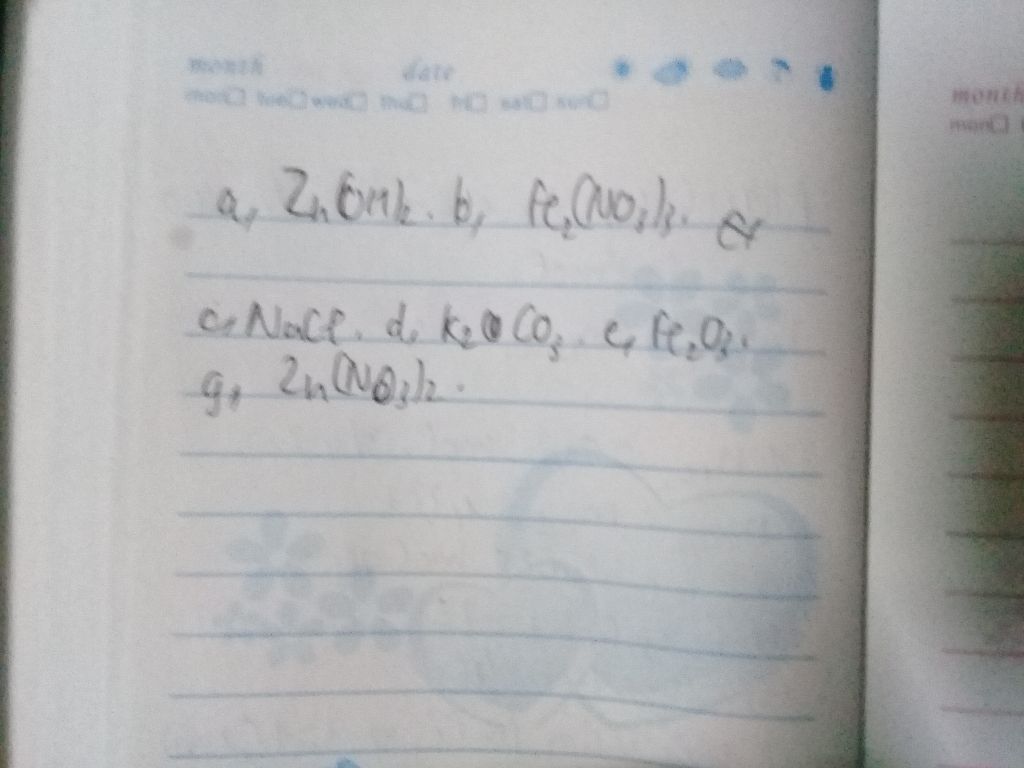 month date
mon tue wed thu fri sat sun
month
mon
a, Zn(OH)2. b, Fe2(NO3)3.
c, NaCl. d, K2CO3. e, Fe2O3.
g, Zn(NO3)2.